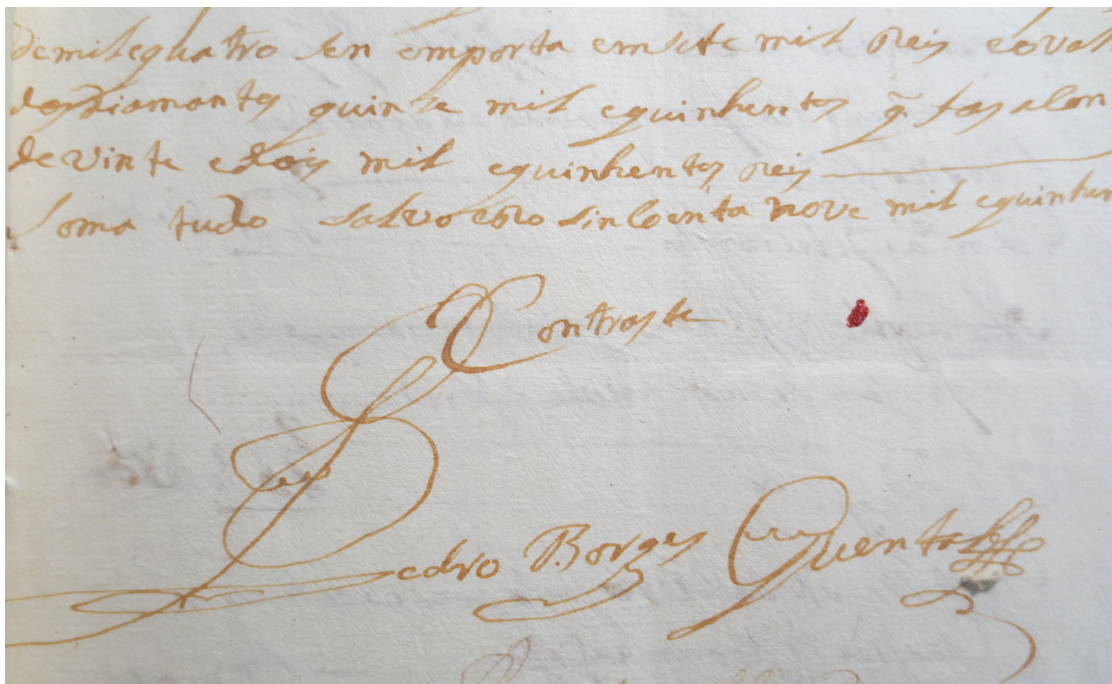 de mil equatro sen emporta emsete mil reis eoval
dosdiamantes quinze mil equinhentos q̃ fas alon
de vinte edois mil equinhentos reis
Soma tudo salvo ero sincoenta nove mil equinhen
Contraste
Pedro Borges Quental